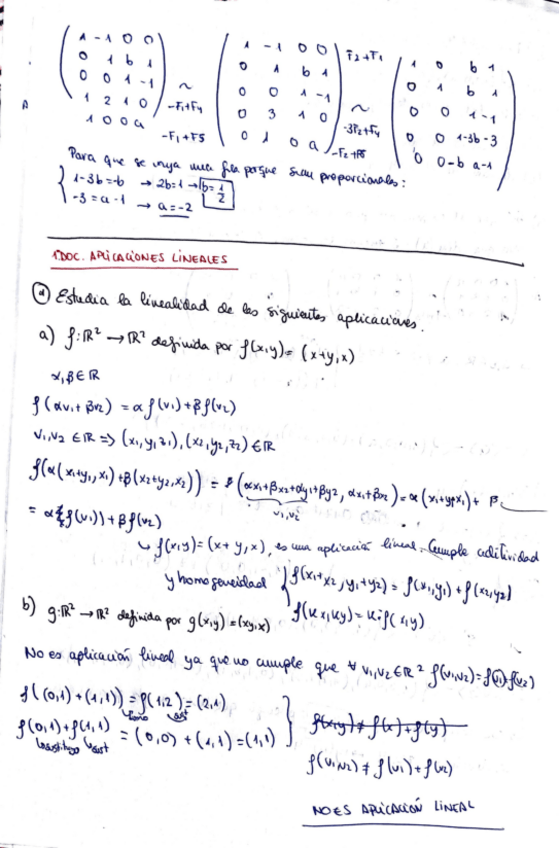 1 -1 0 0
0 1 b 1
0 0 1 -1
1 2 1 0
1 0 0 a
~
-F1+F4
-F1+F5
1 -1 0 0
0 1 b 1
0 0 1 -1
0 3 1 0
0 1 0 a
F2+F1
~
-3F2+F4
-F2+F5
1 0 b 1
0 1 b 1
0 0 1 -1
0 0 1-3b -3
0 0 -b a-1
Para que se vaya una fila porque sean proporcionales:
1-3b=-b → 2b=1 → b=1/2
-3=a-1 → a=-2
1ºDOC. APLICACIONES LINEALES
① Estudia la linealidad de las siguientes aplicaciones.
a) f:ℝ² → ℝ² definida por f(x,y)= (x+y,x)
α,β∈ℝ
f(αv1+βv2) = αf(v1)+βf(v2)
v1,v2 ∈ℝ => (x1,y1,z1),(x2,y2,z2)∈ℝ
f(α(x1+y1,x1)+β(x2+y2,x2)) = f(αx1+βx2+αy1+βy2, αx1+βx2)=α(x1+y1,x1)+ β
v1,v2
= αf(v1)+βf(v2)
↳ f(x,y)=(x+y,x), es una aplicación lineal. Cumple aditividad
y homogeneidad { f(x1+x2,y1+y2)=f(x1,y1)+f(x2,y2)
f(Kx,Ky)=K·f(x,y)
b) g:ℝ²→ℝ² definida por g(x,y)=(xy,x)
No es aplicación lineal ya que no cumple que ∀ v1,v2∈ℝ² f(v1,v2)=f(v1)+f(v2)
f((0,1)+(1,1))=f(1,2)=(2,1)
sust
f(0,1)+f(1,1) = (0,0)+(1,1)=(1,1)
sustituyo sust
f(x,y)≠f(x)+f(y)
f(v1,v2)≠f(v1)+f(v2)
NO ES APLICACIÓN LINEAL